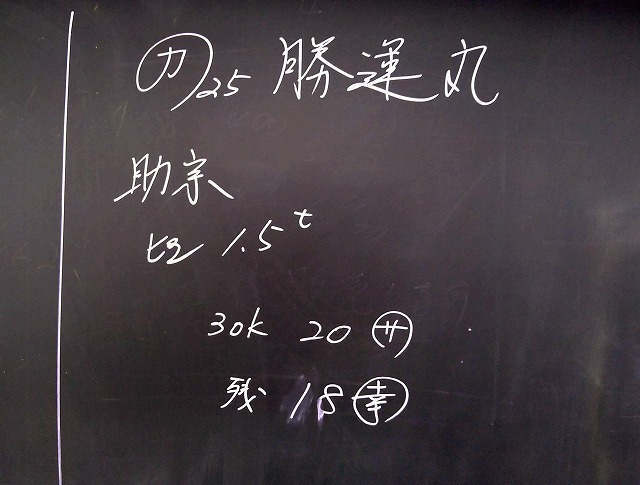 ㋕25 勝運丸
助宗
1.5t
30k 20 ㋚
残 18 ㊵